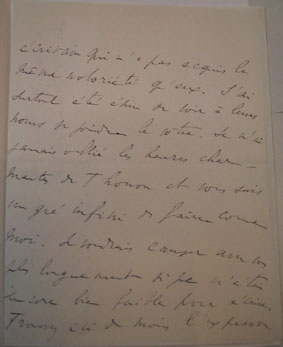 écrivain qui n'a pas acquis la
même notoriété qu'eux. J'ai
surtout été ému de voir à leurs
noms se joindre le votre. Je n'ai
jamais oublié les heures char-
mantes de Thonon et vous sais
un gré infini de faire comme
moi. Je voudrais causer avec vous
plus longuement si je n'étais
encore bien faible pour écrire
Trouvez ici du moins l'expression